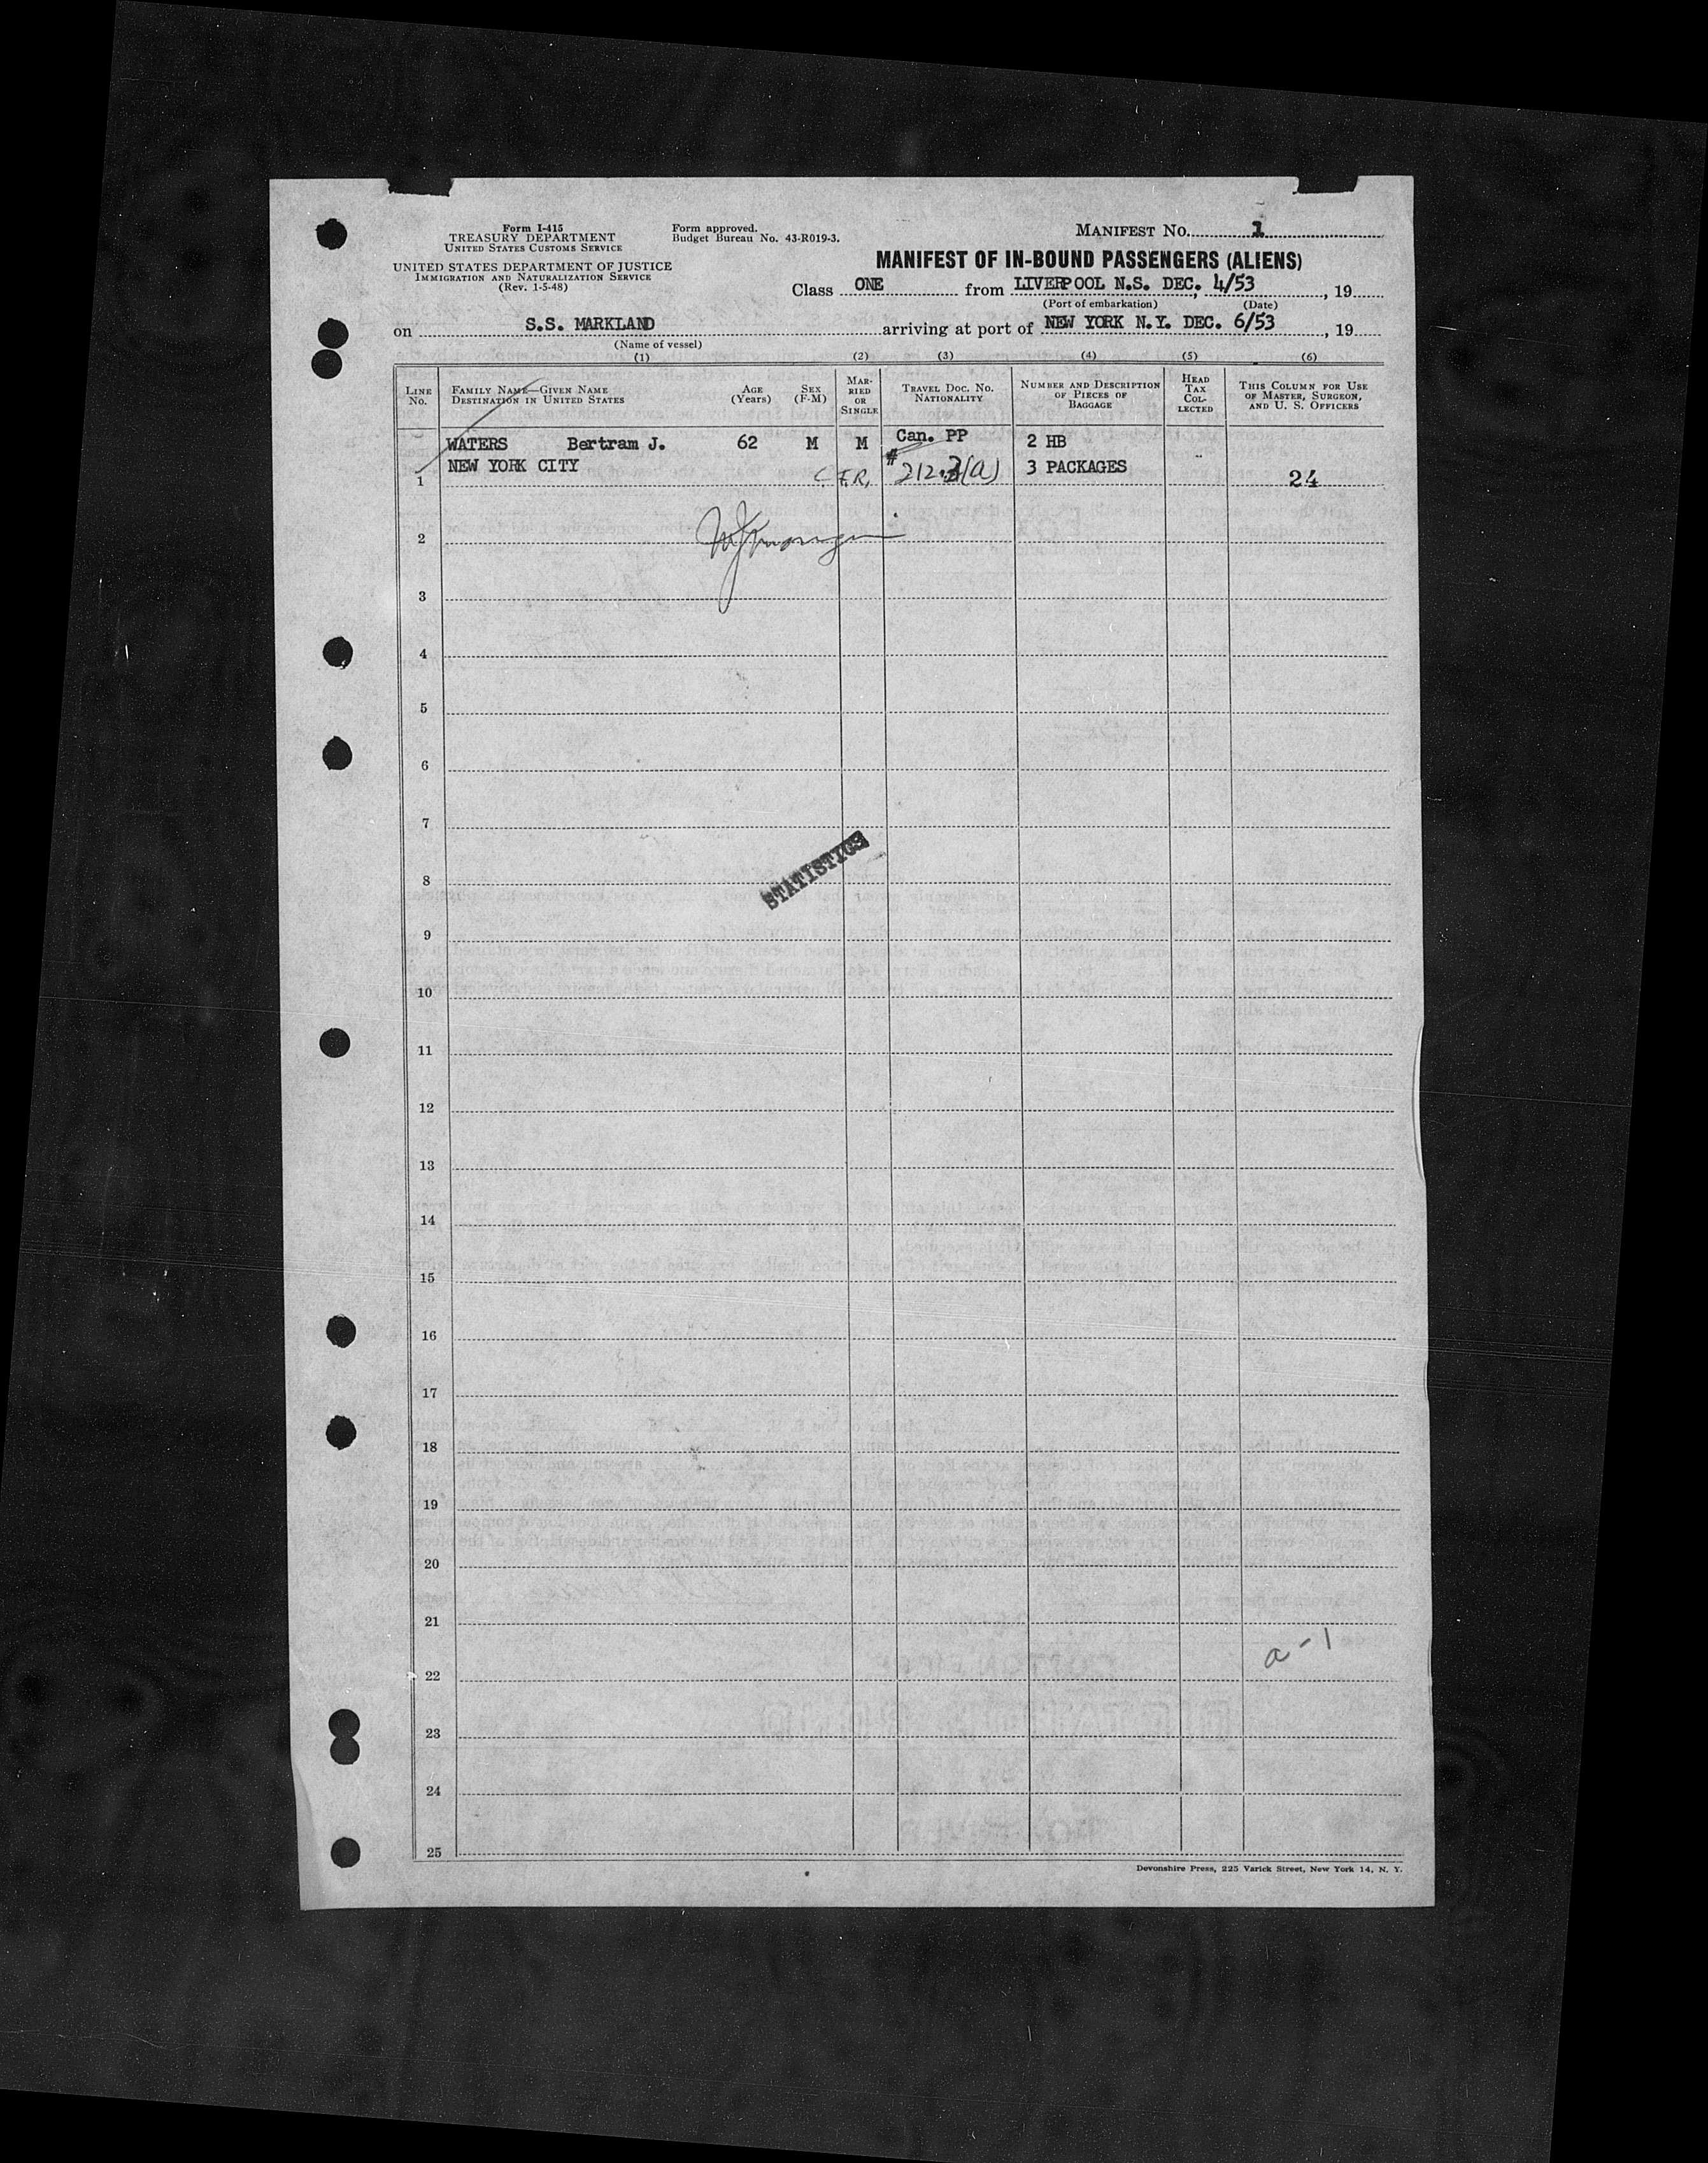 Form I-415
TREASURY DEPARTMENT
UNITED STATES CUSTOMS SERVICE
UNITED STATES DEPARTMENT OF JUSTICE
IMMIGRATION AND NATURALIZATION SERVICE
(Rev. 1-5-48)
Form approved.
Budget Bureau No. 43-R019-3.
MANIFEST No. 1
MANIFEST OF IN-BOUND PASSENGERS (ALIENS)
Class ONE from LIVERPOOL N.S. DEC. 4/53, 19
(Port of embarkation) (Date)
on S.S. MARKLAND arriving at port of NEW YORK N.Y. DEC. 6/53, 19
(Name of vessel)
(1) (2) (3) (4) (5) (6)
LINE No.
FAMILY NAME—GIVEN NAME
DESTINATION IN UNITED STATES
AGE (Years)
SEX (F-M)
MARRIED OR SINGLE
TRAVEL DOC. NO. NATIONALITY
NUMBER AND DESCRIPTION OF PIECES OF BAGGAGE
HEAD TAX COLLECTED
THIS COLUMN FOR USE OF MASTER, SURGEON, AND U. S. OFFICERS
WATERS Bertram J. 62 M M Can. PP 2 HB
NEW YORK CITY # 3 PACKAGES
1 C F.R. 212.3(a) 24
2
3
4
5
6
7
STATISTICS
8
9
10
11
12
13
14
15
16
17
18
19
20
21
a-1
22
23
24
25
Devonshire Press, 225 Varick Street, New York 14, N. Y.